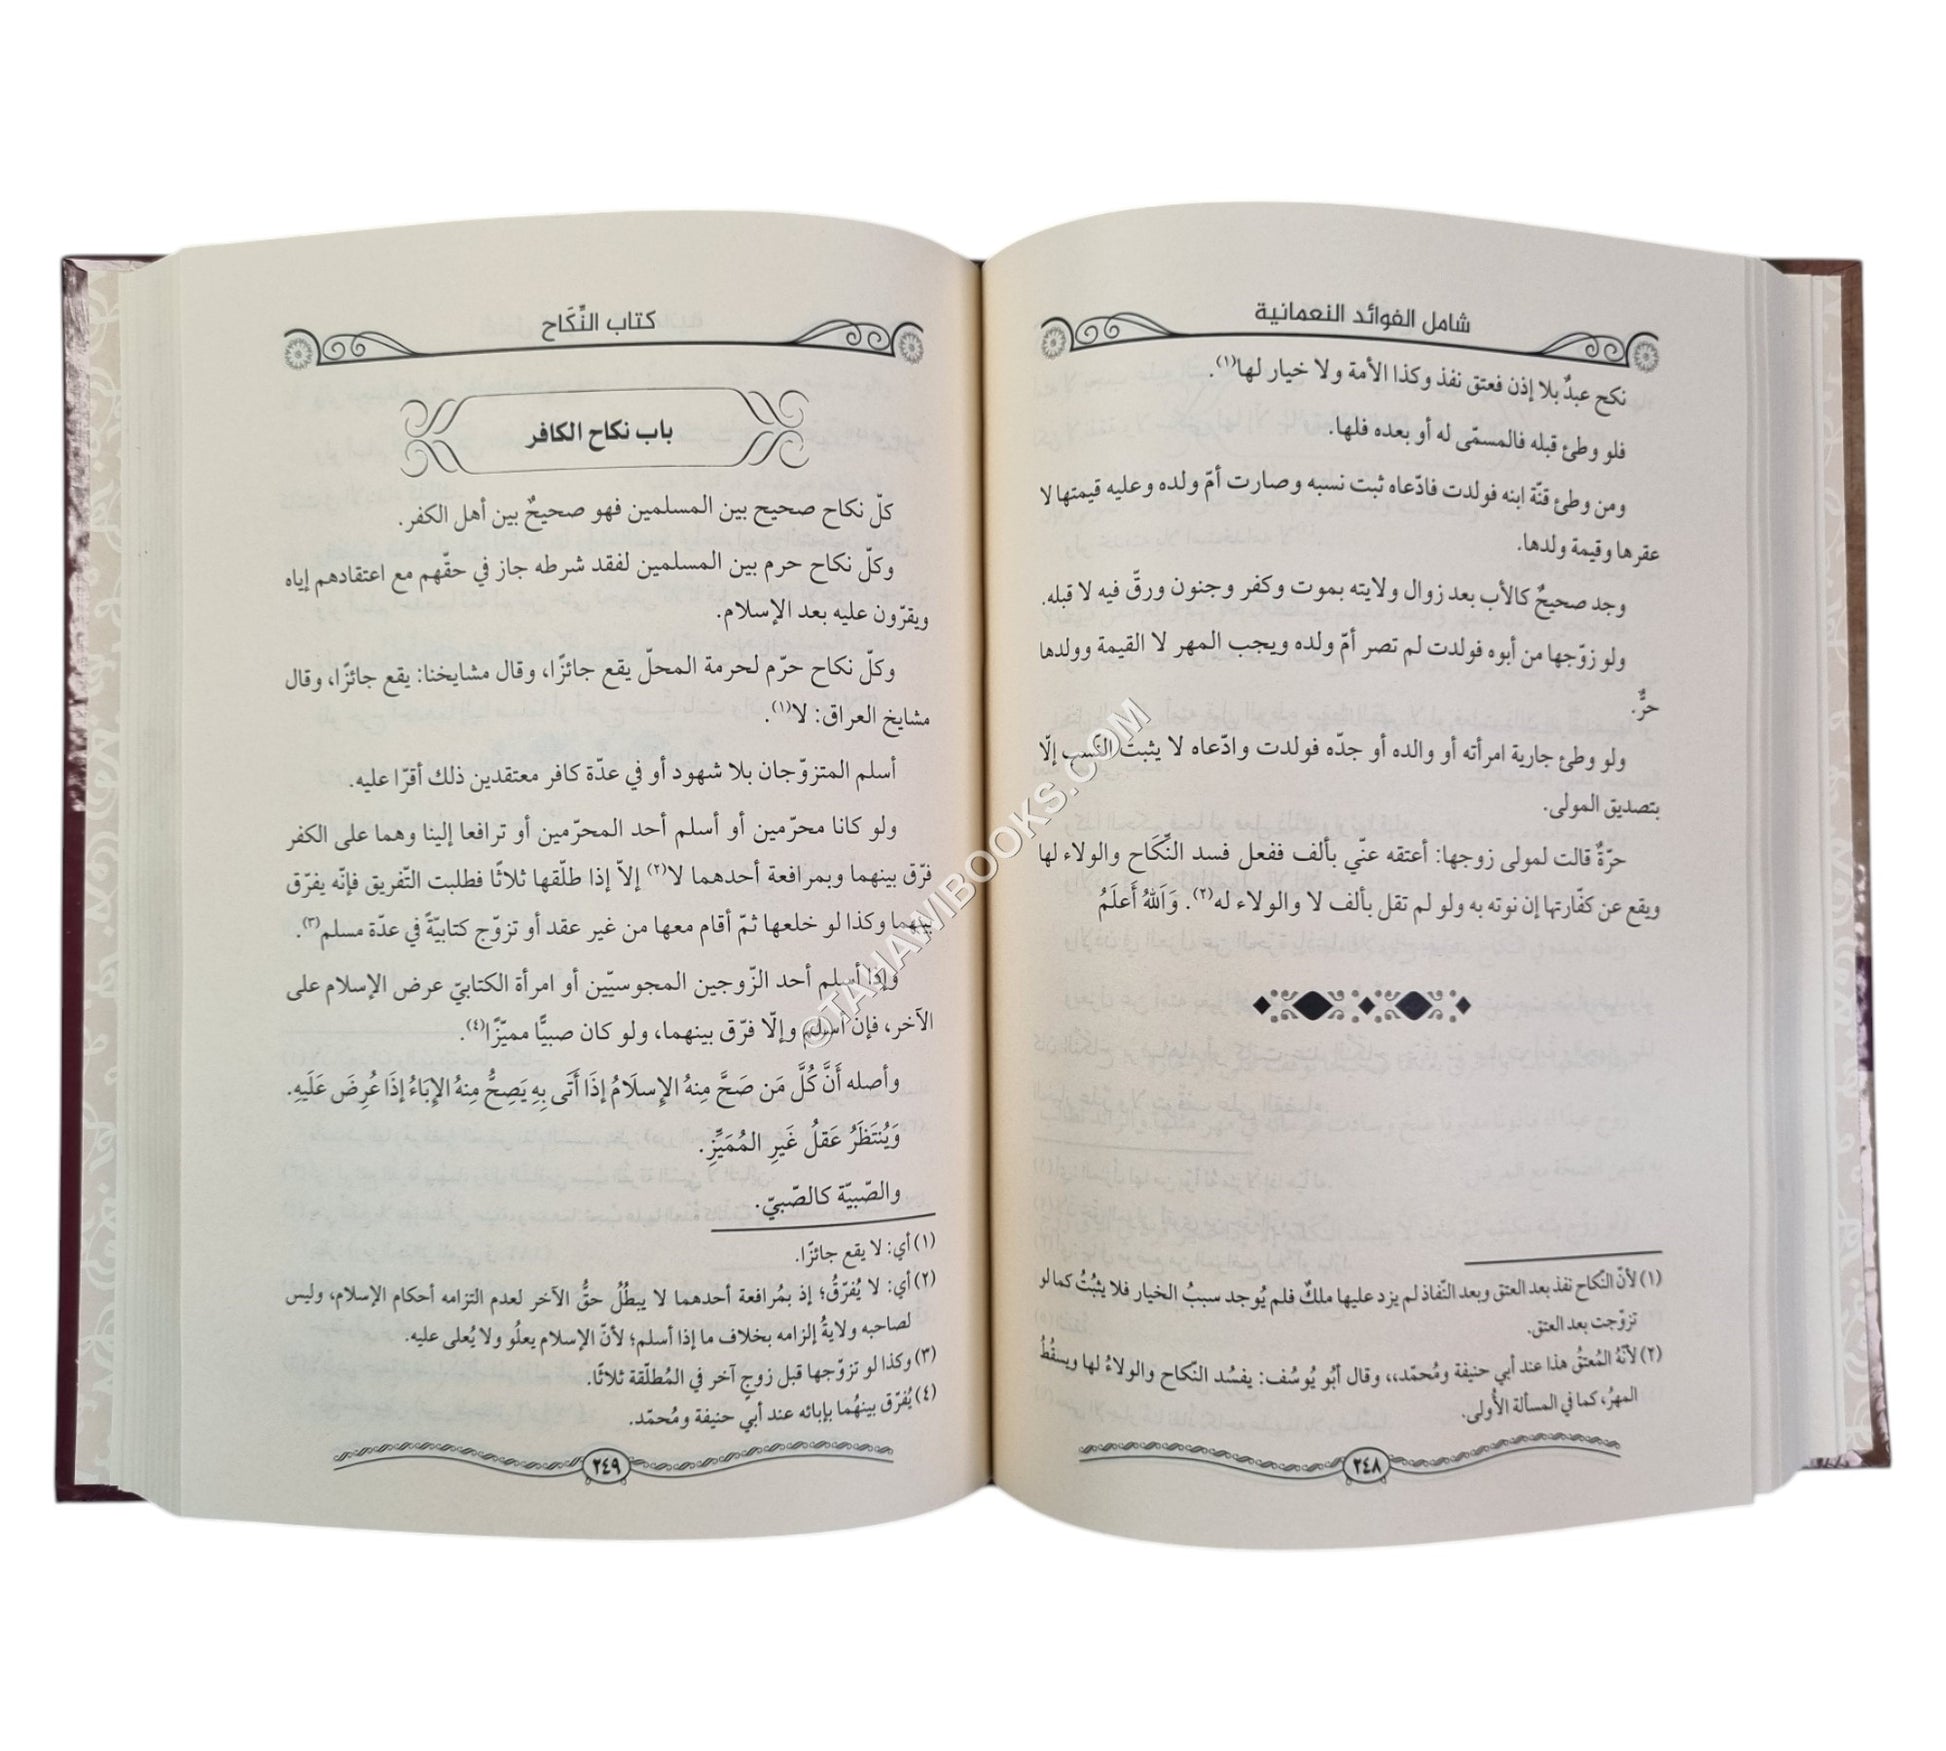 شامل الفوائد النعمانية
نكح عبدٌ بلا إذن فعتق نفذ وكذا الأمة ولا خيار لها(١).
فلو وطئ قبله فالمسمّى له أو بعده فلها.
ومن وطئ قنّة ابنه فولدت فادّعاه ثبت نسبه وصارت أمّ ولده وعليه قيمتها لا
عقرها وقيمة ولدها.
وجد صحيحٌ كالأب بعد زوال ولايته بموت وكفر وجنون ورقّ فيه لا قبله.
ولو زوّجها من أبوه فولدت لم تصر أمّ ولده ويجب المهر لا القيمة وولدها
حرٌّ.
ولو وطئ جارية امرأته أو والده أو جدّه فولدت وادّعاه لا يثبت النّسب إلّا
بتصديق المولى.
حرّةٌ قالت لمولى زوجها: أعتقه عنّي بألف ففعل فسد النِّكَاح والولاء لها
ويقع عن كفّارتها إن نوته به ولو لم تقل بألف لا والولاء له(٢). وَاَللهُ أَعلَمُ
(١) لأنّ النّكاح نفذ بعد العتق وبعد النّفاذ لم يزد عليها ملكٌ فلم يُوجد سببُ الخيار فلا يثبُتُ كما لو
تزوّجت بعد العتق.
(٢) لأنّهُ المُعتقُ هذا عند أبي حنيفة ومُحمّد،، وقال أبُو يُوسُف: يفسُد النّكاح والولاءُ لها ويسقُطُ
المهرُ، كما في المسألة الأُولى.
٢٤٨
كتاب النِّكَاح
باب نكاح الكافر
كلّ نكاح صحيح بين المسلمين فهو صحيحٌ بين أهل الكفر.
وكلّ نكاح حرم بين المسلمين لفقد شرطه جاز في حقّهم مع اعتقادهم إياه
ويقرّون عليه بعد الإسلام.
وكلّ نكاح حرّم لحرمة المحلّ يقع جائزًا، وقال مشايخنا: يقع جائزًا، وقال
مشايخ العراق: لا(١).
أسلم المتزوّجان بلا شهود أو في عدّة كافر معتقدين ذلك أقرّا عليه.
ولو كانا محرّمين أو أسلم أحد المحرّمين أو ترافعا إلينا وهما على الكفر
فرّق بينهما وبمرافعة أحدهما لا(٢) إلاّ إذا طلّقها ثلاثًا فطلبت التّفريق فإنّه يفرّق
بينهما وكذا لو خلعها ثمّ أقام معها من غير عقد أو تزوّج كتابيّةً في عدّة مسلم(٣).
وإذا أسلم أحد الزّوجين المجوسيّين أو امرأة الكتابيّ عرض الإسلام على
الآخر، فإن أسلم وإلّا فرّق بينهما، ولو كان صبيًّا مميّزًا(٤).
وأصله أَنَّ كُلَّ مَن صَحَّ مِنهُ الإِسلَامُ إذَا أَتَى بِهِ يَصِحُّ مِنهُ الإِبَاءُ إذَا عُرِضَ عَلَيهِ.
وَيُنتَظَرُ عَقلُ غَيرِ المُمَيِّزِ.
والصّبيّة كالصّبيّ.
(١) أي: لا يقع جائزًا.
(٢) أي: لا يُفرّقُ؛ إذ بمُرافعة أحدهما لا يبطُلُ حقُّ الآخر لعدم التزامه أحكام الإسلام، وليس
لصاحبه ولايةُ إلزامه بخلاف ما إذا أسلم؛ لأنّ الإسلام يعلُو ولا يُعلى عليه.
(٣) وكذا لو تزوّجها قبل زوجٍ آخر في المُطلّقة ثلاثًا.
(٤) يُفرّق بينهُما بإبائه عند أبي حنيفة ومُحمّد.
٢٤٩
©TAHAWIBOOKS.COM